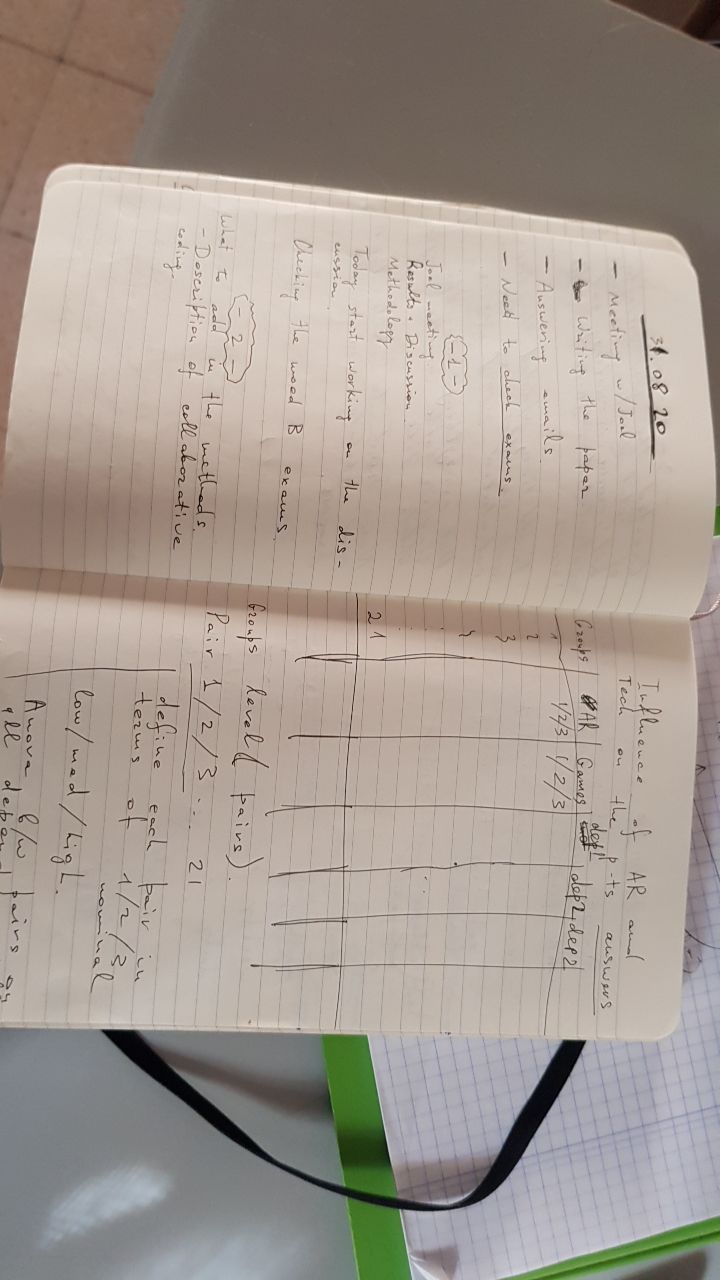 31.08 20
- Meeting w/Joel
- Writing the paper
- Answering emails.
- Need to check exams.
-1-
Joel meeting
Results + Discussion.
Methodology
Today start working on the dis-
cussion.
Checking the mood B exams.
-2-
What to add in the methods:
- Description of collaborative
coding.
Influence of AR and
Tech on the p-ts answers
Groups AR Games dep1 dep2 dep2
1 1/2/3 1/2/3
2
3
4
21
Groups level (pairs).
Pair 1/2/3 ... 21
define each pair in
terms of 1/2/3
nominal
low/med/high.
Anova b/w pairs on
all depend